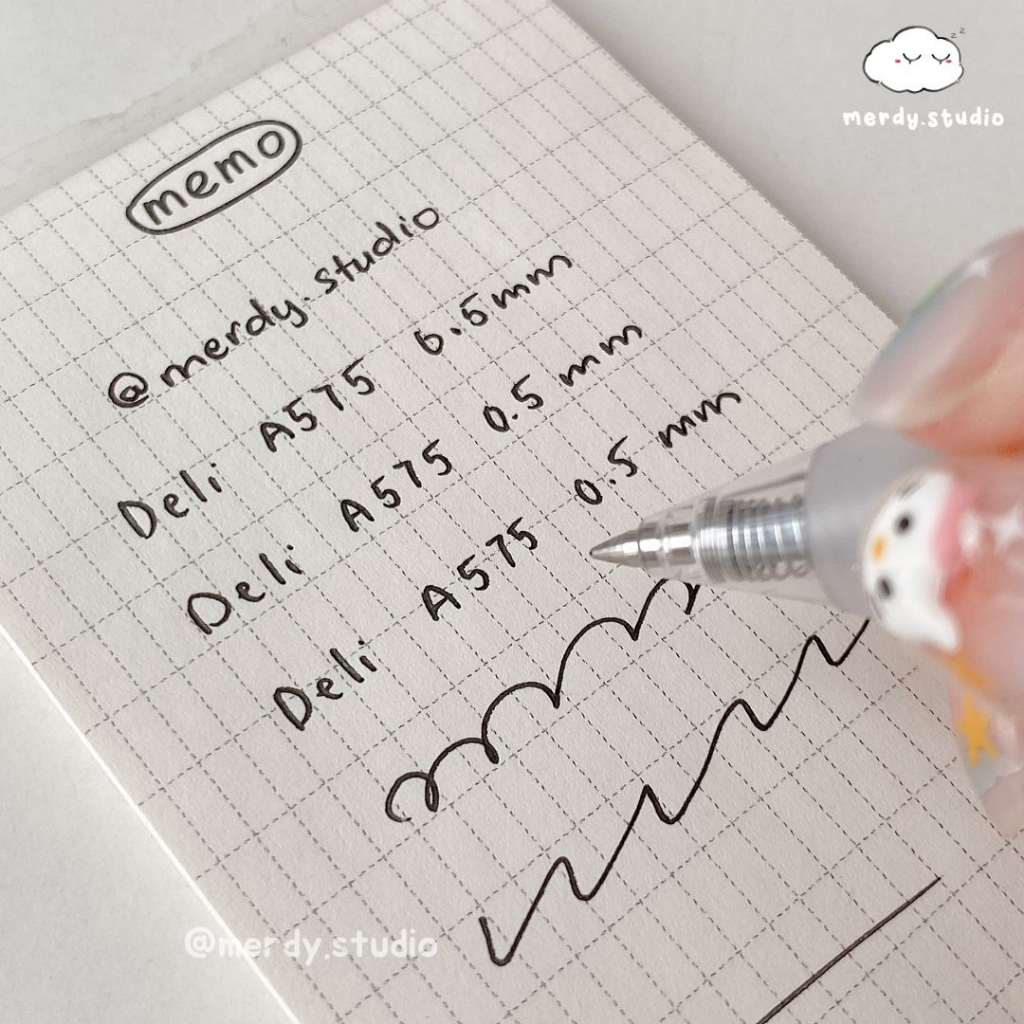 merdy.studio
memo
@merdy.studio
Deli A575 0.5mm
Deli A575 0.5 mm
Deli A575 0.5 mm
@merdy.studio